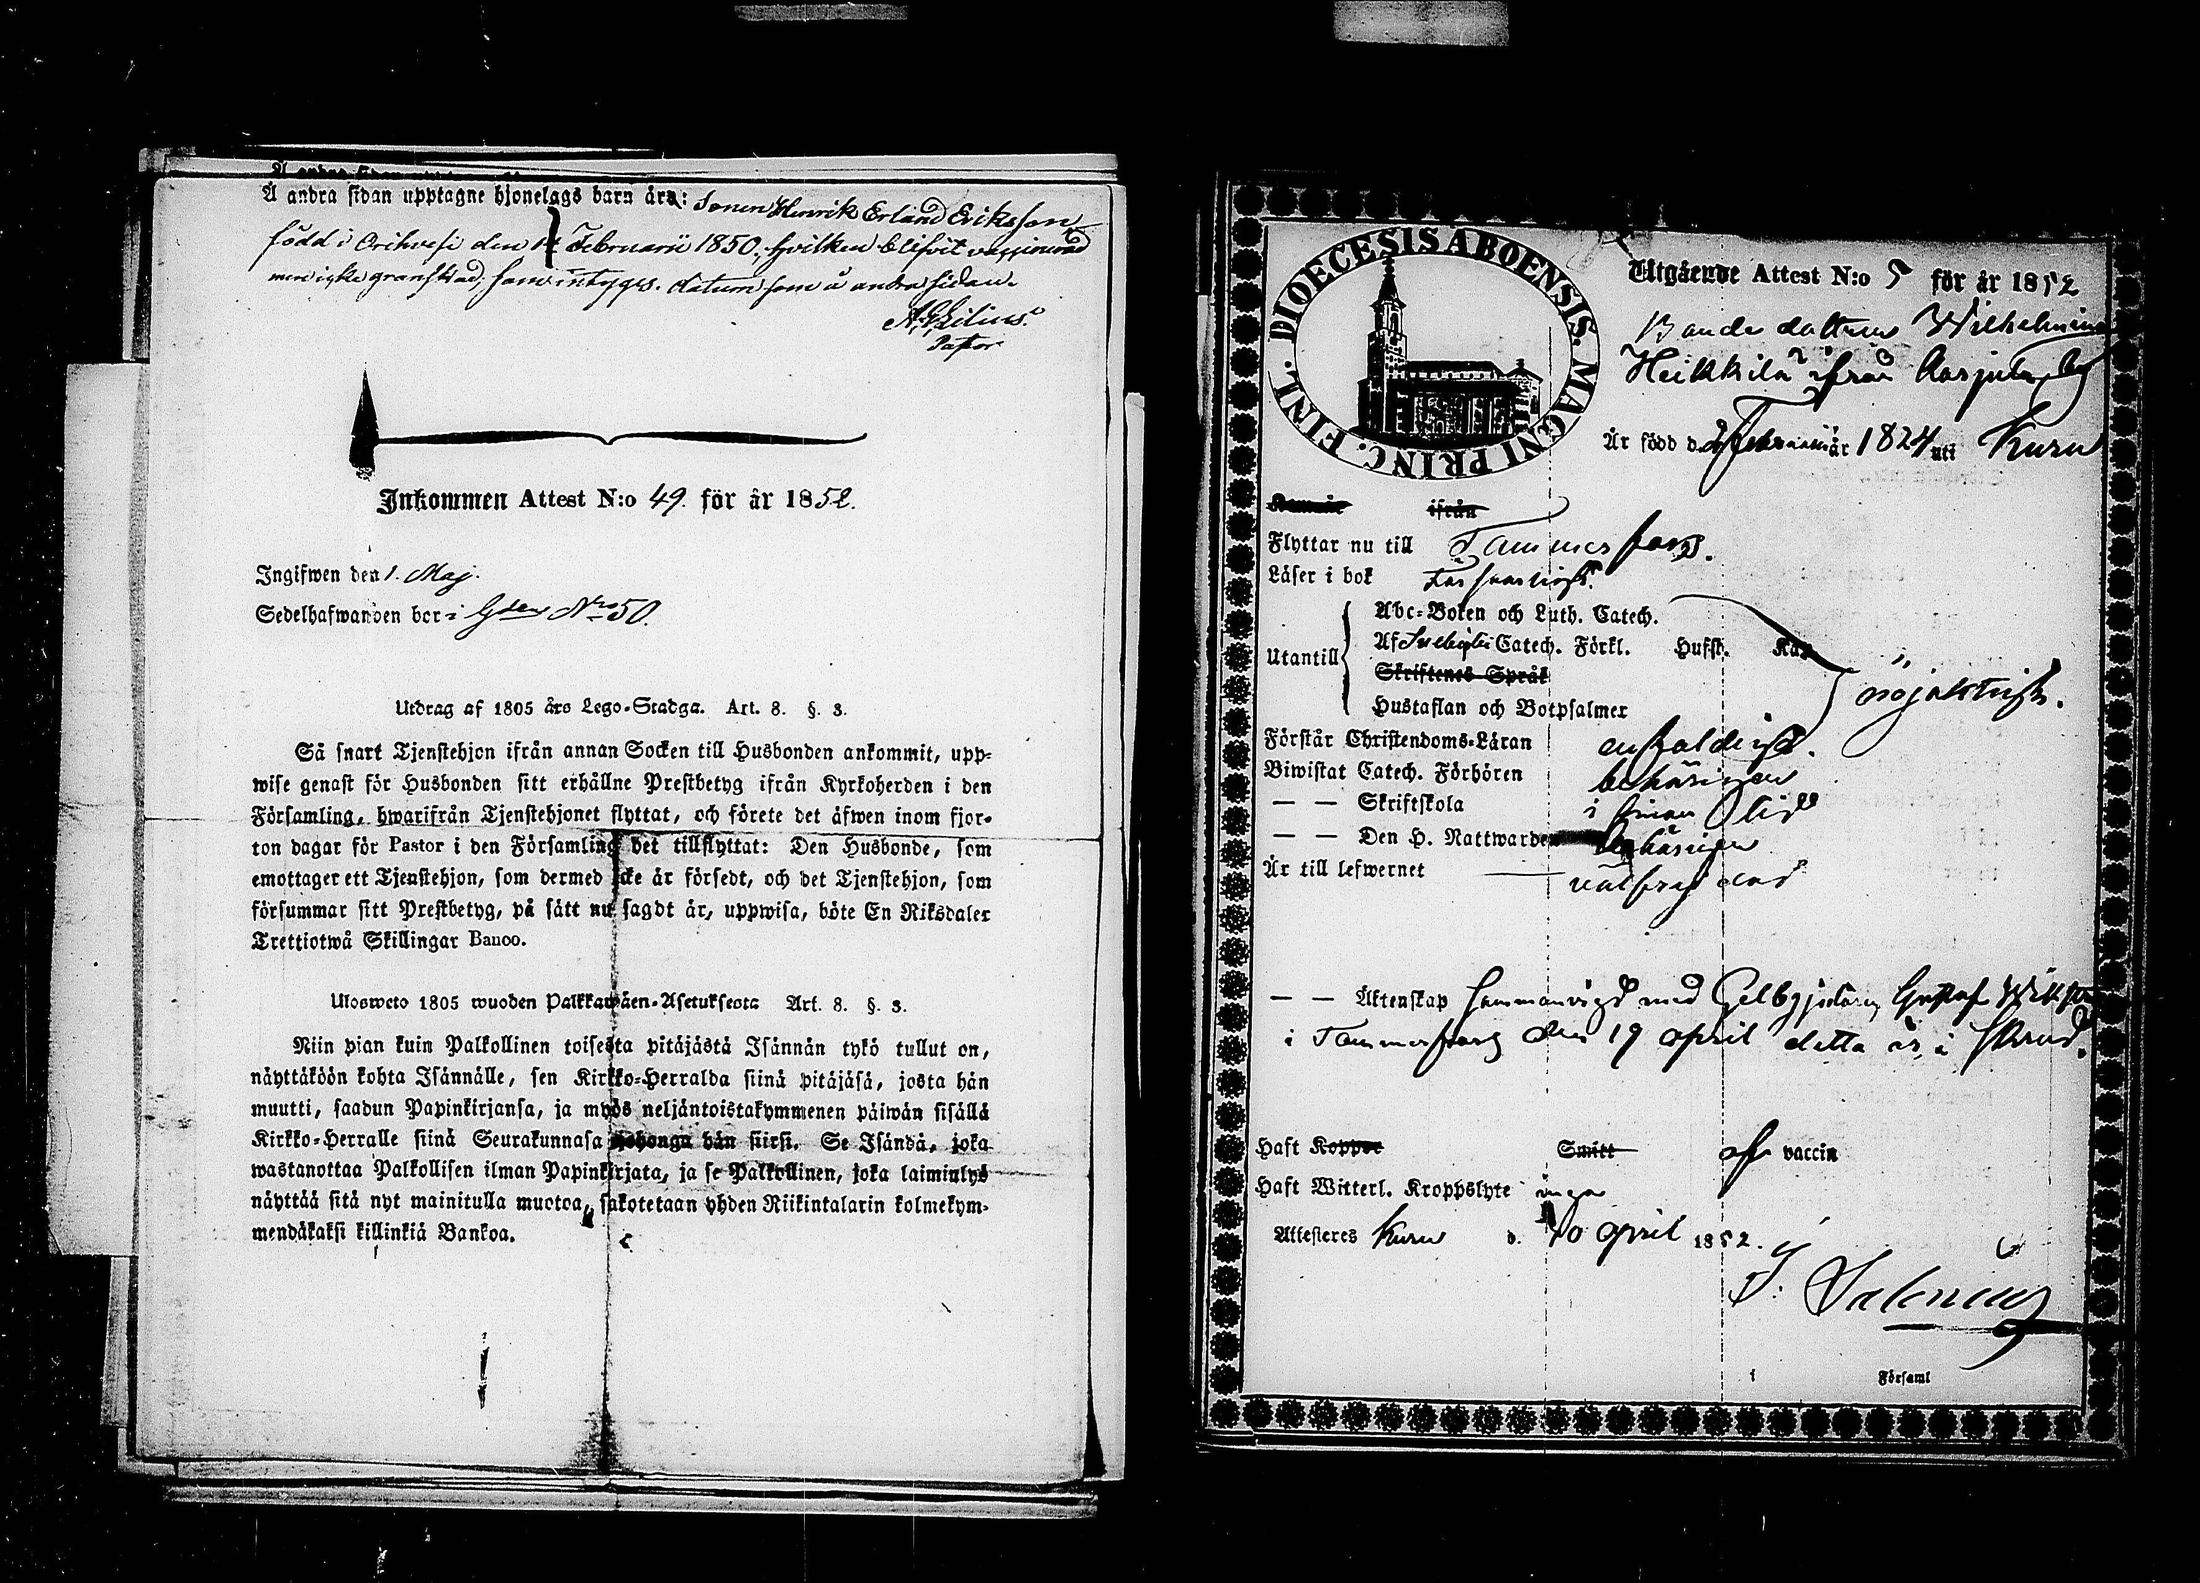 Å andra sidan upptagne hjonelags barn äro: Sonen Henrik Erland Eriksson
född i Orihvesi den 14 Februarii 1850, hvilken blifvit vaccinerad
men icke granskad, som intygas. datum som å andra sidan.
A. G. Lilius.
Pastor
Inkommen Attest N:o 49. för år 1852.
Ingifwen den 1. Maj.
Sedelhafwanden bor i Gden Nro 50.
Utdrag af 1805 års Lego-Stadga. Art. 8. §. 3.
Så snart Tjenstehjon ifrån annan Socken till Husbonden ankommit, upp-
wise genast för Husbonden sitt erhållne Prestbetyg ifrån Kyrkoherden i den
Församling, hwarifrån Tjenstehjonet flyttat, och förete det äfwen inom fjor-
ton dagar för Pastor i den Församling det tillflyttat: Den Husbonde, som
emottager ett Tjenstehjon, som dermed icke är försedt, och det Tjenstehjon, som
försummar sitt Prestbetyg, på sätt nu sagdt är, uppwisa, böte En Riksdaler
Trettiotwå Skillingar Banco.
Ulosweto 1805 wuoden Palkkawäen-Asetuksesta Art. 8. §. 3.
Niin pian kuin Palkollinen toisesta pitäjästä Isännän tykö tullut on,
näyttäköön kohta Isännälle, sen Kirkko-Herralda siinä pitäjäsä, josta hän
muutti, saadun Papinkirjansa, ja myös neljäntoistakymmenen päiwän sisällä
Kirkko-Herralle siinä Seurakunnasa johonga hän siirsi. Se Isändä, joka
wastanottaa Palkollisen ilman Papinkirjata, ja se Palkollinen, joka laiminlyö
näyttää sitä nyt mainitulla muotoa, sakotetaan yhden Riikintalarin kolmekym-
mendäkaksi killinkiä Bankoa.
DIOECESIS ABOENSIS. MAGNI PRINC. FINL.
Utgående Attest N:o 5 för år 1852
Bonde dottren Wilhelmina
Heikkilä ifrån Karjula by
Är född d. Februarii år 1824 uti Kuru
ifrån
Flyttar nu till Tammerfors.
Läser i bok försvarligt.
Abc-Boken och Luth. Catech.
Utantill Af Svebilii Catech. Förkl. Husft. Kap
Skriftenes Språk
nöjaktigt.
Hustaflan och Botpsalmer
Förstår Christendoms-Läran enfaldigt.
Biwistat Catech. Förhören behörigen
— — Skriftskola i sinom tid
— — Den H. Nattwarden behörigen
Är till lefwernet välfrejdad
— — Äktenskap sammanvigd med Gelbgjutaren Gustaf
i Tammerfors den 19 april detta år
Haft Koppor Smitt af vaccin
Haft Witterl. Kroppslyte inga
Attesteres Kuru d. 30 april 1852.
Salenius
i Församl